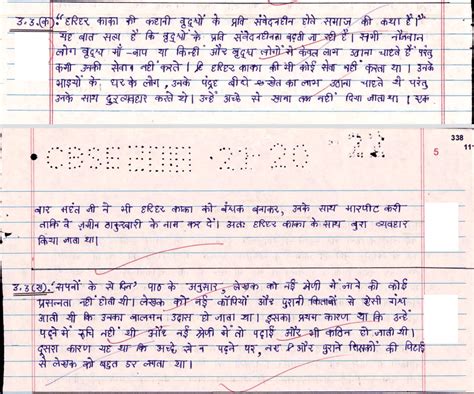 उ.3.(क). "हरिहर काका की कहानी वृद्धों के प्रति संवेदनहीन होते समाज की कथा है।"
यह बात सत्य है कि वृद्धों के प्रति संवेदनहीनता बढ़ती जा रही है। सभी नौजवान
लोग वृद्ध माँ-बाप या किन्हीं और वृद्ध लोगों से केवल लाभ उठाना चाहते हैं परंतु
कभी उनकी सेवा नहीं करते। हरिहर काका की भी कोई सेवा नहीं करता था। उनके
भाइयों के घर के लोग, उनके पंद्रह बीघे खेत का लाभ उठाना चाहते थे परंतु
उनके साथ दुर्व्यवहार करते थे। उन्हें अच्छे से खाना तक नहीं दिया जाता था। एक
CBSE 21-20
338
5
बार महंत जी ने भी हरिहर काका को बंधक बनाकर, उनके साथ मारपीट करी
ताकि वे ज़मीन ठाकुरबारी के नाम कर दें। अतः हरिहर काका के साथ बुरा व्यवहार
किया जाता था।
उ.3(ख). 'सपनों के से दिन' पाठ के अनुसार, लेखक को नई श्रेणी में जाने की कोई
प्रसन्नता नहीं होती थी। लेखक को नई कॉपियों और पुरानी किताबों से ऐसी गंध
आती थी कि उनका बालमन उदास हो जाता था। इसका प्रथम कारण था कि उन्हें
पढ़ने में रुचि नहीं थी और नई श्रेणी में तो पढ़ाई और भी कठिन हो जाती थी।
दूसरा कारण यह था कि अच्छे से न पढ़ने पर, नए और पुराने शिक्षकों की पिटाई
से लेखक को बहुत डर लगता था।